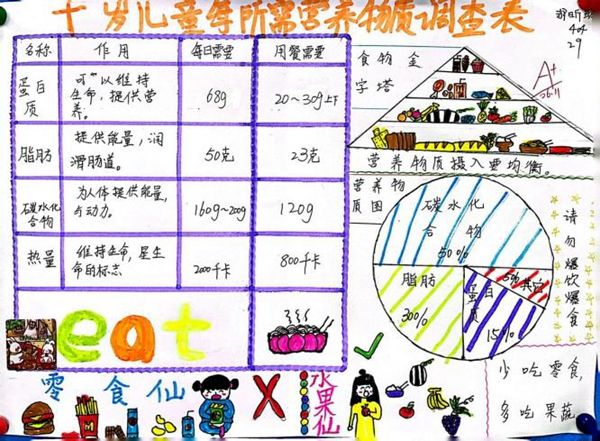 十岁儿童每日所需营养物质调查表
名称 作用 每日需要 用餐需要
蛋白质
可以维持
生命,提供营
养。
68g
20~30g上下
脂肪
提供能量,润
滑肠道。
50克
23克
碳水化
合物
为人体提供能量,
与动力。
160g~200g
120g
热量
维持生命,是生
命的标志
2000千卡
800千卡
eat
零食仙
水果仙
食物金
字塔
A+
26.11
404
29
营养物质摄入要均衡。
营养物
质图
碳水化
合物
50%
脂肪
30%
蛋白
质
15%
5%其它
请勿爆饮爆食
少吃零食,
多吃果蔬